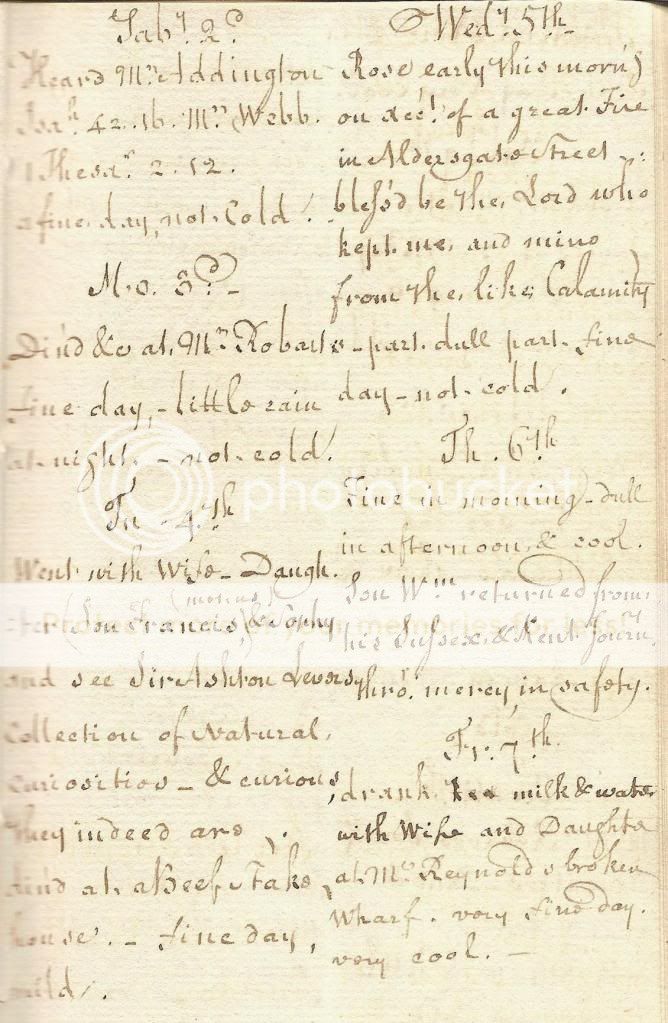 Sab.y 2.d
Heard Mr. Addington
Isa.h 42.16. Mr. Webb.
1 Thess.s 2.12.
a fine day, not Cold.
Mo. 3.d
Din'd &c at Mr. Robarts
fine day, - little rain
at night - not cold.
Tu - 4.th
Went with Wife - Daugh.
(morns)
ter (Son Francis) & Sophy
and see Sir Ashton Levers
Collection of Natural
Curiosities - & curious
they indeed are.
din'd at a Beef Stake
house. - fine day,
mild.
Wed.y 5th
Rose early this morn'g
on acc.t of a great Fire
in Aldersgate Street -
bless'd be the Lord who
kept me and mine
from the like Calamity
- part dull part fine
day - not cold.
Th. 6.th
Fine in morning - dull
in afternoon & cool.
Son Wm. returned from
his Sussex & Kent Journ.
thro' mercy in safety.
Fr. 7.th
drank milk & water
with Wife and Daughte
at Mr. Reynolds broken
Wharf. very fine day.
very cool. -
photobucket